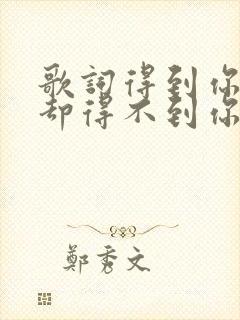 歌词得到你
却得不到你
鄭秀文